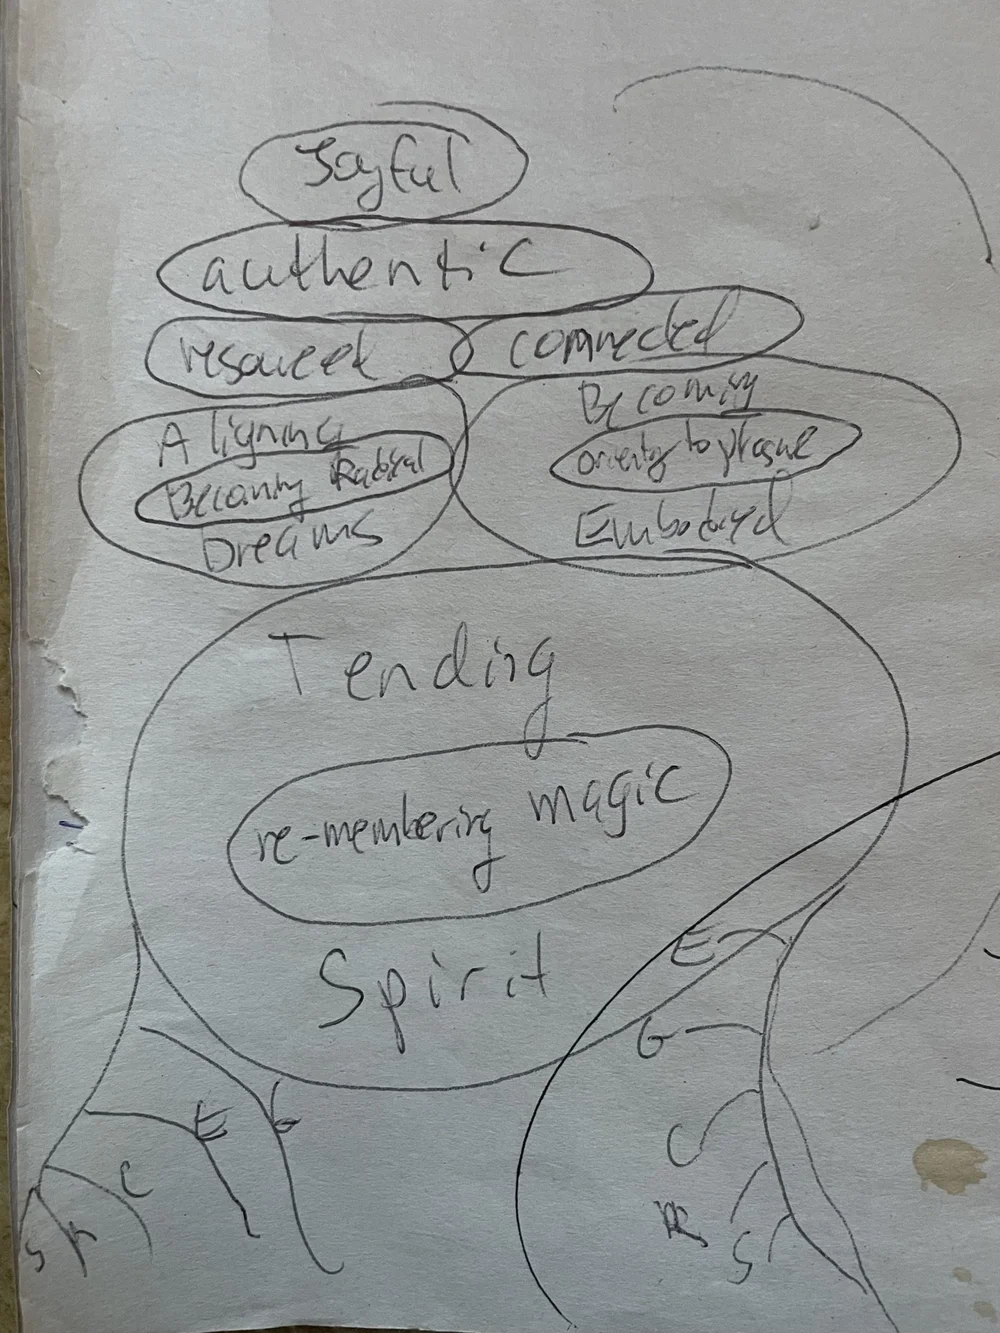 Joyful
authentic
resourced connected
Aligning
Becoming Radical
Dreams
Becoming
orienting to
Embodied
Tending
re-membering magic
Spirit
E
G
C
R
S
E G
C
S R